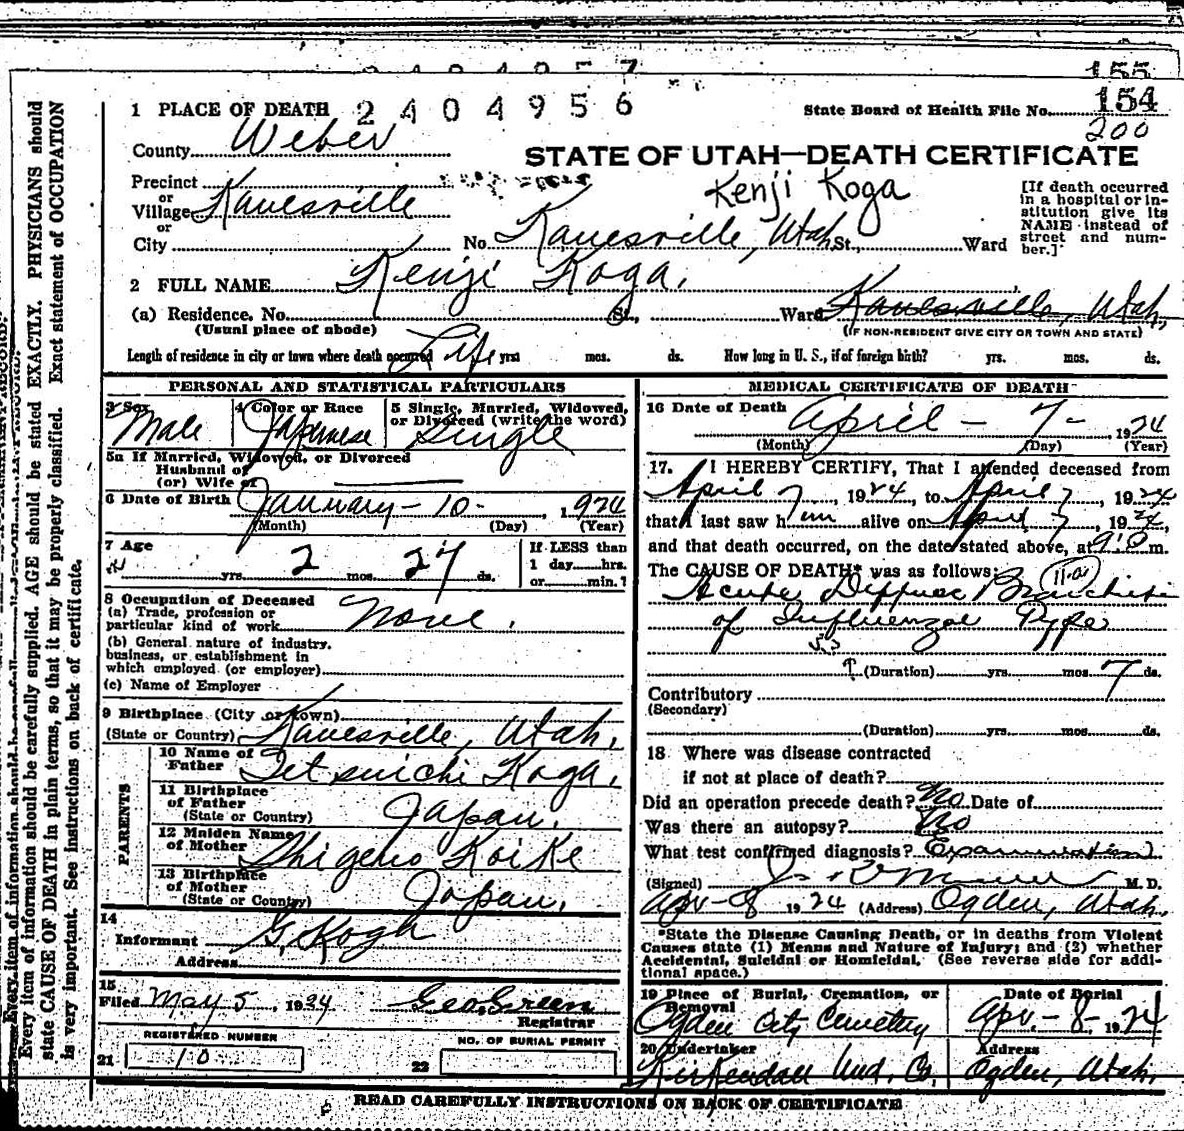 155
2404957
1 PLACE OF DEATH 2404956 State Board of Health File No. 154
200
County Weber
STATE OF UTAH—DEATH CERTIFICATE
Precinct
or
Village Kanesville
or
City
Kenji Koga
No. Kanesville, Utah St., Ward
[If death occurred in a hospital or institution give its NAME instead of street and number.]
2 FULL NAME Kenji Koga.
(a) Residence. No. St., Ward Kanesville, Utah.
(Usual place of abode) (IF NON-RESIDENT GIVE CITY OR TOWN AND STATE)
Length of residence in city or town where death occurred Life yrs mos. ds. How long in U. S., if of foreign birth? yrs. mos. ds.
PERSONAL AND STATISTICAL PARTICULARS
3 Sex Male
4 Color or Race Japenese
5 Single, Married, Widowed, or Divorced (write the word) Single
5a If Married, Widowed, or Divorced
Husband of
(or) Wife of
6 Date of Birth January - 10 - , 1924
(Month) (Day) (Year)
7 Age
yrs. 2 mos. 27 ds.
If LESS than
1 day hrs.
or min.?
8 Occupation of Deceased
(a) Trade, profession or
particular kind of work None.
(b) General nature of industry,
business, or establishment in
which employed (or employer)
(c) Name of Employer
9 Birthplace (City or town)
(State or Country) Kanesville, Utah.
PARENTS
10 Name of
Father Tetsuichi Koga.
11 Birthplace
of Father
(State or Country) Japan.
12 Maiden Name
of Mother Shigeno Koike
13 Birthplace
of Mother
(State or Country) Japan.
14
Informant G. Kogh
Address
15
Filed May 5, 1924 Geo. Green
Registrar
REGISTERED NUMBER
21 10
NO. OF BURIAL PERMIT
22
MEDICAL CERTIFICATE OF DEATH
16 Date of Death April - 7 - , 1924
(Month) (Day) (Year)
17. I HEREBY CERTIFY, That I attended deceased from
April 7, 1924, to April 7, 1924
that I last saw him alive on April 7, 1924,
and that death occurred, on the date stated above, at 9:0 m.
The CAUSE OF DEATH* was as follows:
Acute Diffuse Bronchitis
of Influenzal Type
(Duration) yrs. mos. 7 ds.
Contributory
(Secondary)
(Duration) yrs. mos. ds.
18 Where was disease contracted
if not at place of death?
Did an operation precede death? No Date of
Was there an autopsy? No
What test confirmed diagnosis? Examination
(Signed) M. D.
Apr - 8 1924 (Address) Ogden, Utah.
*State the Disease Causing Death, or in deaths from Violent
Causes state (1) Means and Nature of Injury; and (2) whether
Accidental, Suicidal or Homicidal. (See reverse side for additional space.)
19 Place of Burial, Cremation, or
Removal
Ogden City Cemetery
Date of Burial
Apr. - 8 - 1924
20 Undertaker
Kirkendall Und. Co.
Address
Ogden, Utah.
READ CAREFULLY INSTRUCTIONS ON BACK OF CERTIFICATE
Every item of information should be carefully supplied. AGE should be stated EXACTLY. PHYSICIANS should
state CAUSE OF DEATH in plain terms, so that it may be properly classified. Exact statement of OCCUPATION
is very important. See instructions on back of certificate.